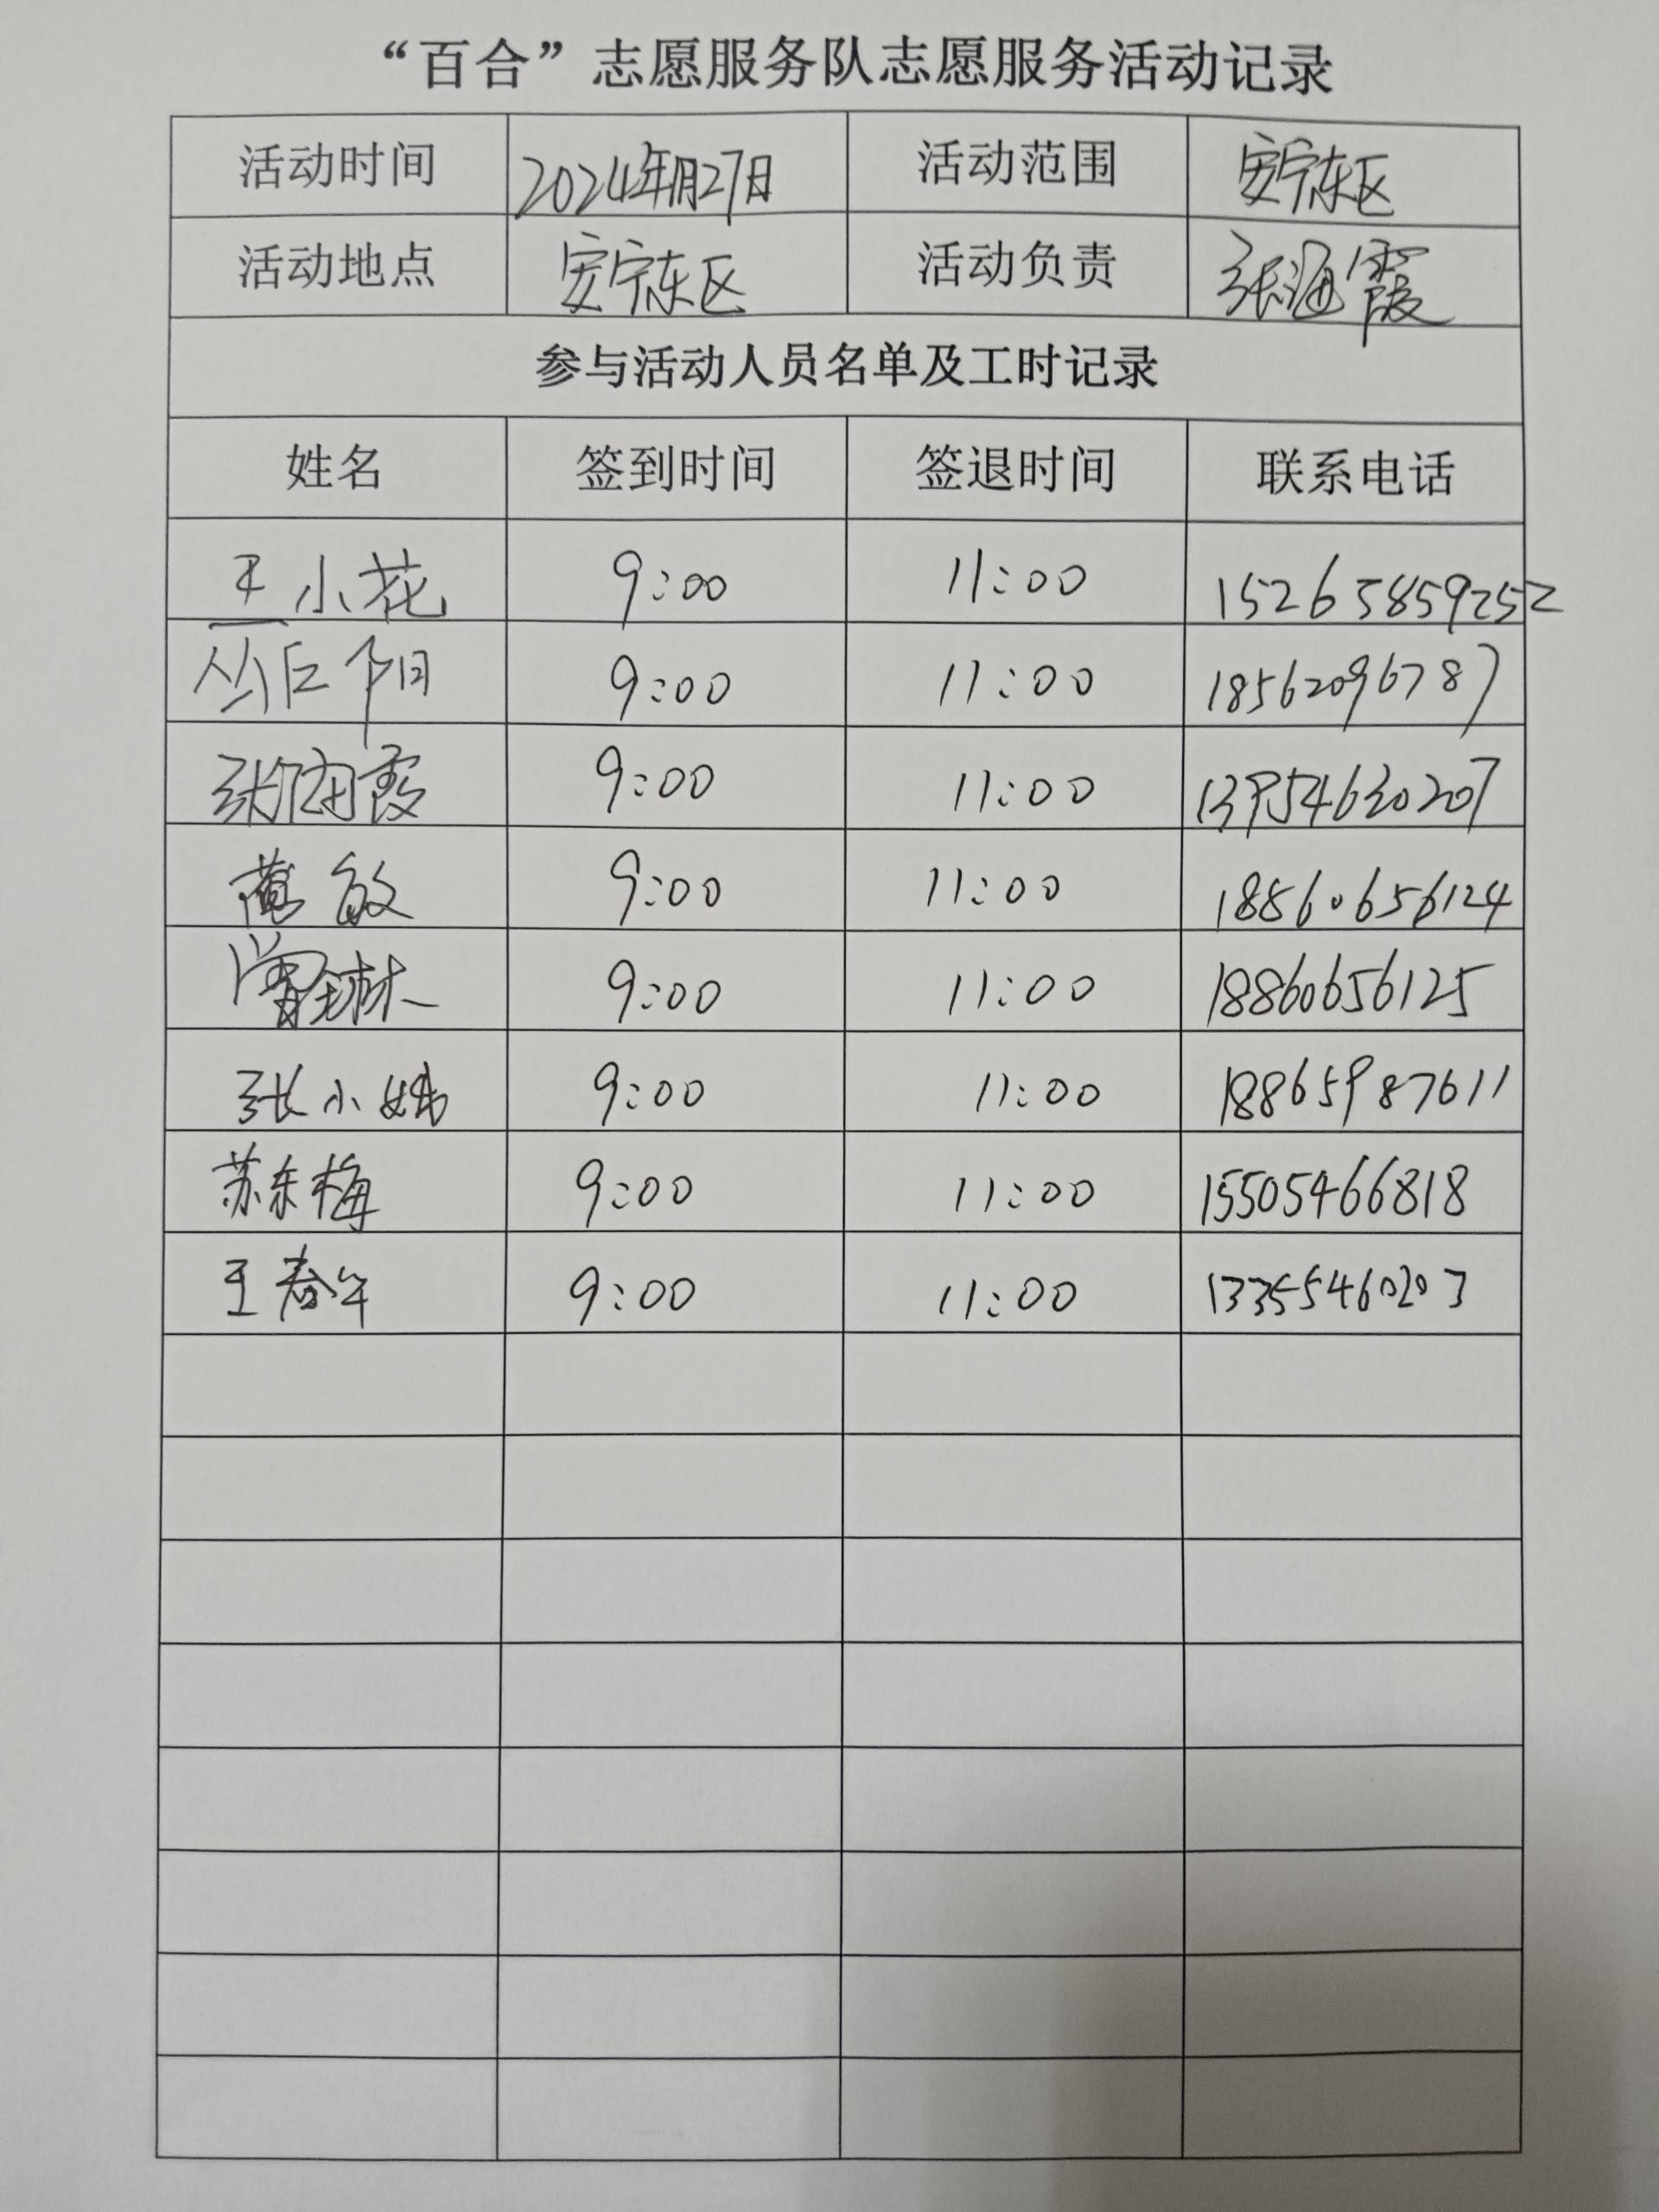 “百合”志愿服务队志愿服务活动记录
活动时间 2024年1月27日 活动范围 安宁东区
活动地点 安宁东区 活动负责 张海霞
参与活动人员名单及工时记录
姓名 签到时间 签退时间 联系电话
王小花 9:00 11:00 15265859252
丛巨阳 9:00 11:00 18562096787
张海霞 9:00 11:00 13954630207
敏 9:00 11:00 18860656124
曾琳 9:00 11:00 18860656125
张小娥 9:00 11:00 18865987611
苏东梅 9:00 11:00 15505466818
王春年 9:00 11:00 13355460203